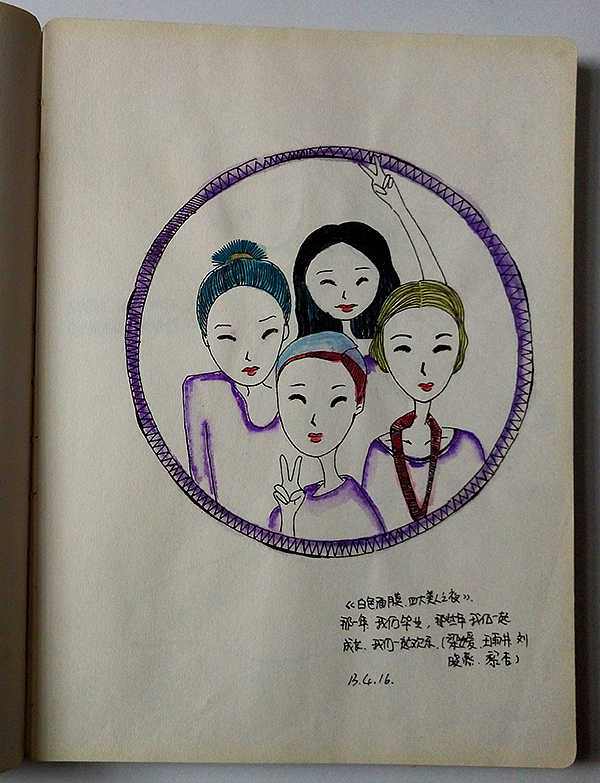 《白色面膜.四大美人之夜》.
那一年 我们毕业, 那些年 我们一起
成长. 我们一起欢乐.(梁媛. 王雨井 刘
晓燕. 黎杏)
13.4.16.